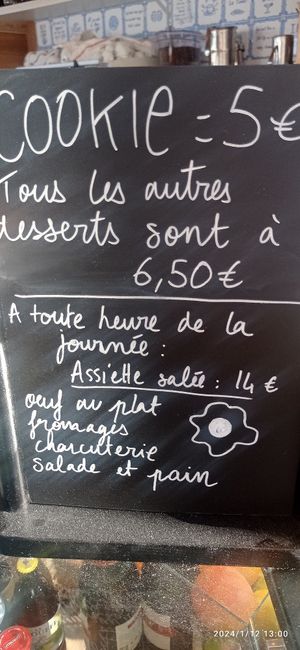 COOKIE = 5€
Tous les autres
desserts sont à
6,50€
A toute heure de la
journée :
Assiette salée : 14 €
oeuf au plat
fromages
charcuterie
salade et pain
2024/1/12 13:00